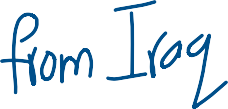 from Iraq